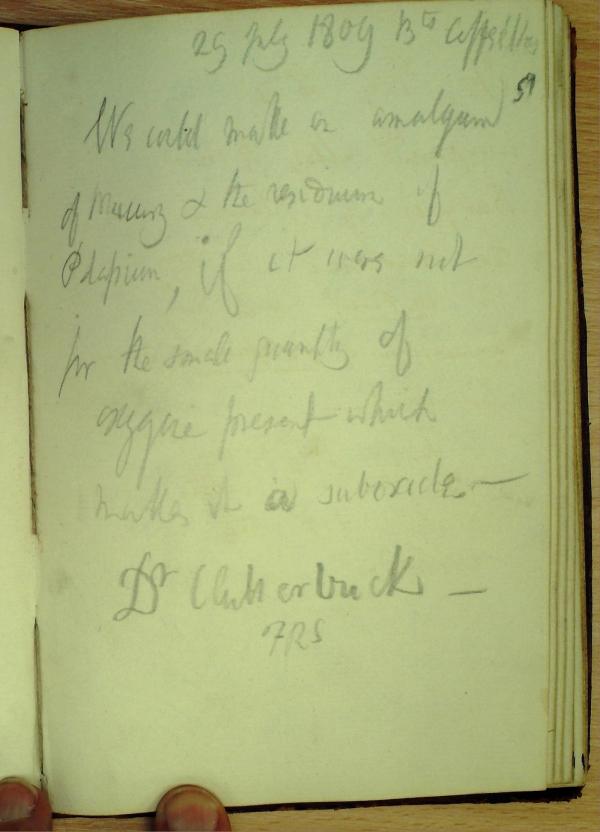 29 July 1809
51
We could make an amalgam
of Mercury & the residuum of
if it were not
for the small quantity of
oxygene present which
makes it a suboxide —
Dr Clutterbuck —
FRS